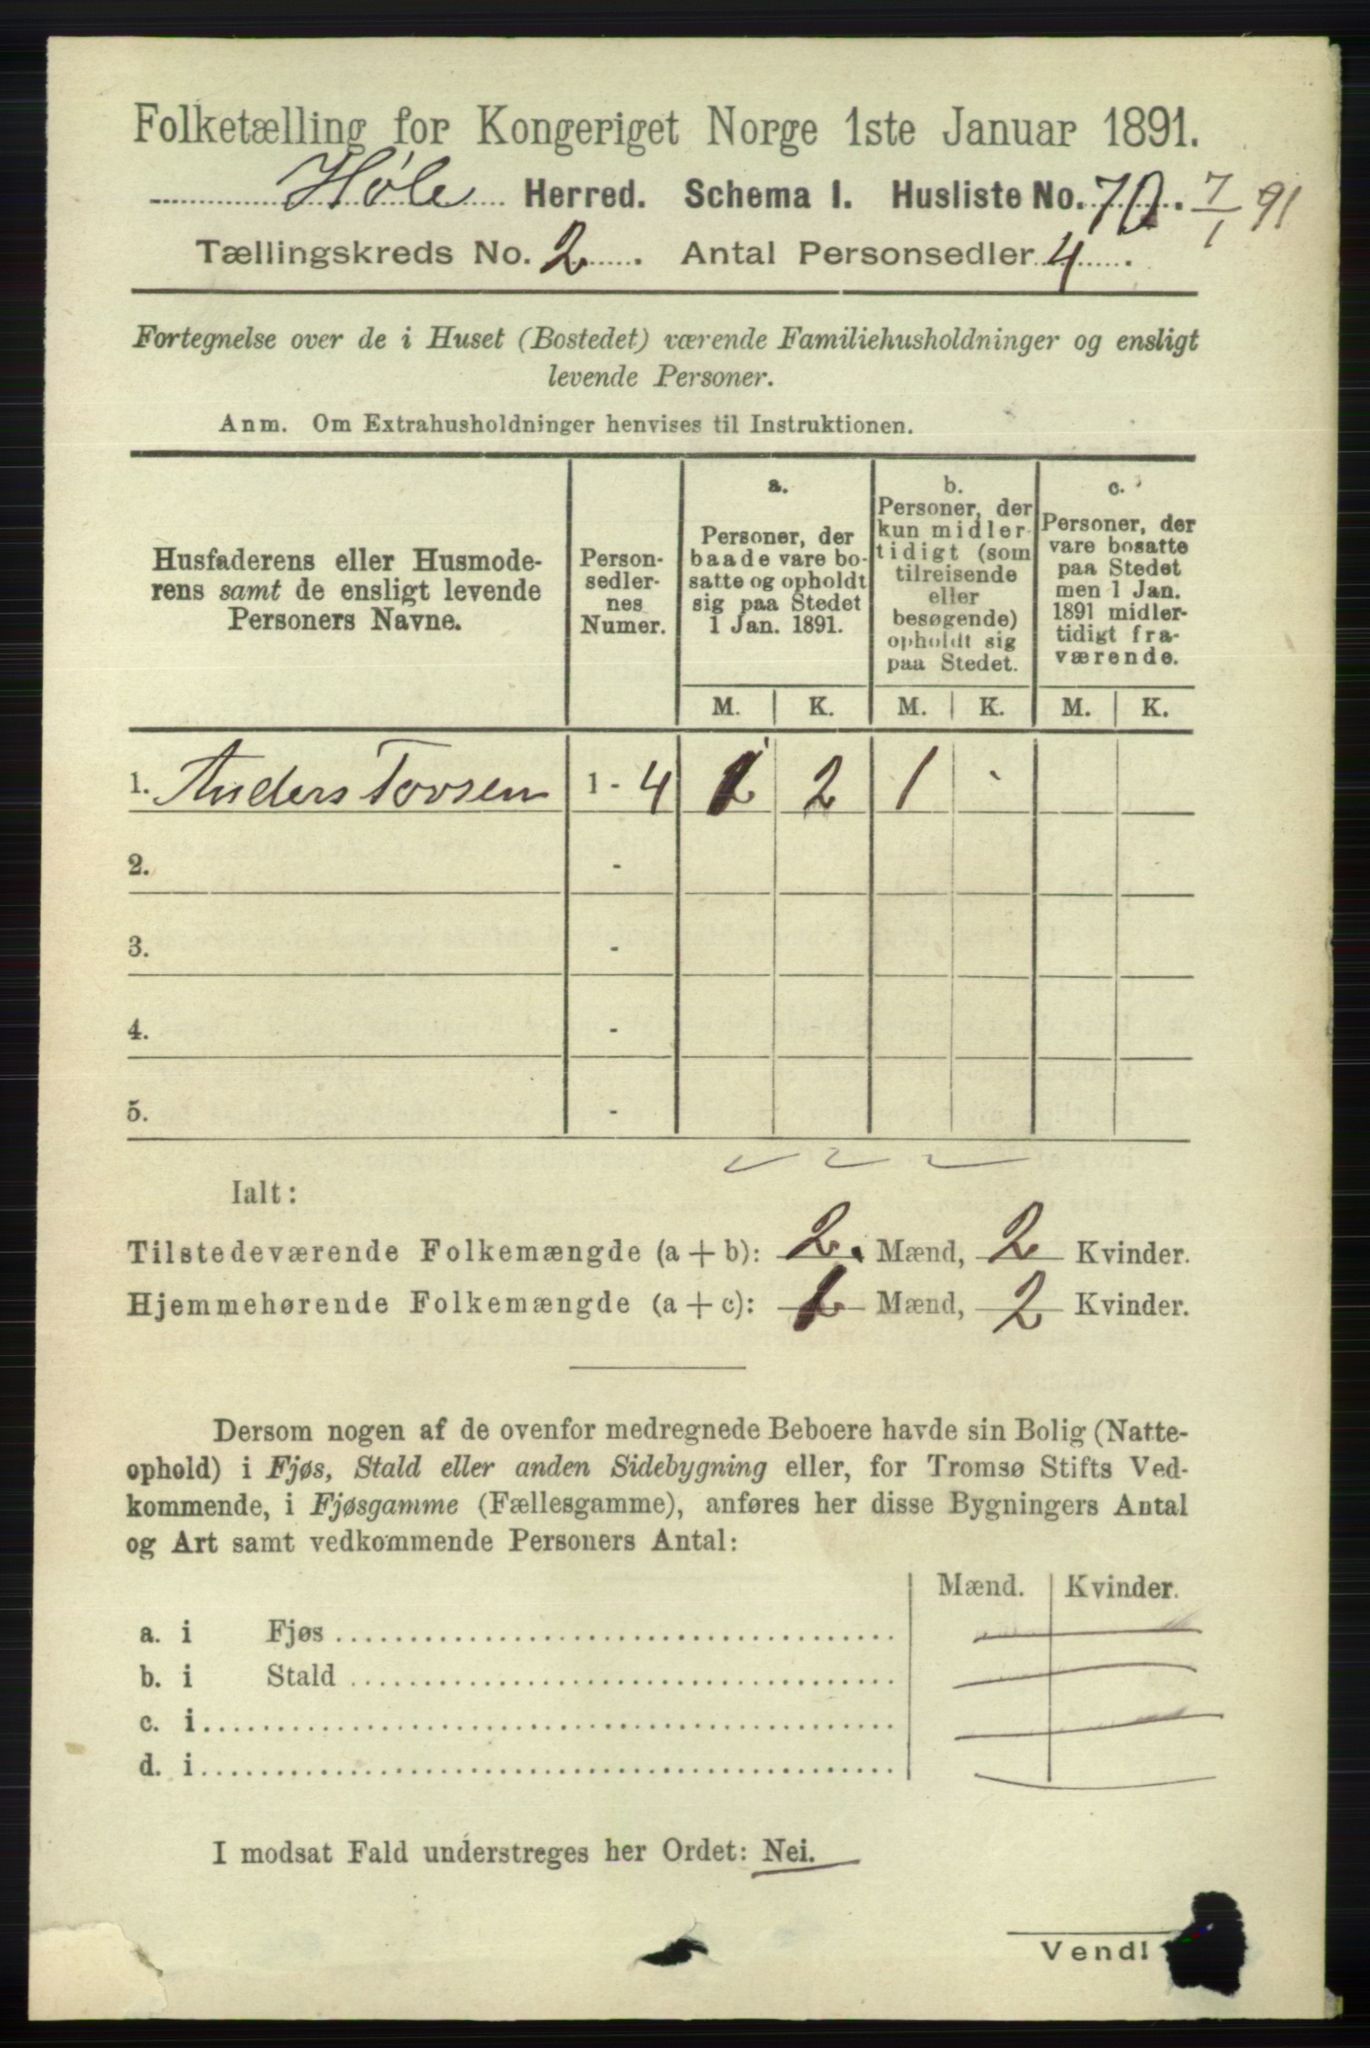 Folketælling for Kongeriget Norge 1ste Januar 1891.
Høle Herred. Schema I. Husliste No. 70. 7/1 91
Tællingskreds No. 2. Antal Personsedler 4.
Fortegnelse over de i Huset (Bostedet) værende Familiehusholdninger og ensligt
levende Personer.
Anm. Om Extrahusholdninger henvises til Instruktionen.
Husfaderens eller Husmode-
rens samt de ensligt levende
Personers Navne.
Person-
sedler-
nes
Numer.
a.
Personer, der
baade vare bo-
satte og opholdt
sig paa Stedet
1 Jan. 1891.
b.
Personer, der
kun midler-
tidigt (som
tilreisende
eller
besøgende)
opholdt sig
paa Stedet.
c.
Personer, der
vare bosatte
paa Stedet
men 1 Jan.
1891 midler-
tidigt fra-
værende.
M. K. M. K. M. K.
1. Anders Tovsen 1 - 4 1 2 1 -
2. -
3. -
4. -
5. -
Ialt:
Tilstedeværende Folkemængde (a + b): 2. Mænd, 2 Kvinder.
Hjemmehørende Folkemængde (a + c): 1 Mænd, 2 Kvinder.
Dersom nogen af de ovenfor medregnede Beboere havde sin Bolig (Natte-
ophold) i Fjøs, Stald eller anden Sidebygning eller, for Tromsø Stifts Ved-
kommende, i Fjøsgamme (Fællesgamme), anføres her disse Bygningers Antal
og Art samt vedkommende Personers Antal:
Mænd. Kvinder.
a. i Fjøs
b. i Stald
c. i
d. i
I modsat Fald understreges her Ordet: Nei.
Vend